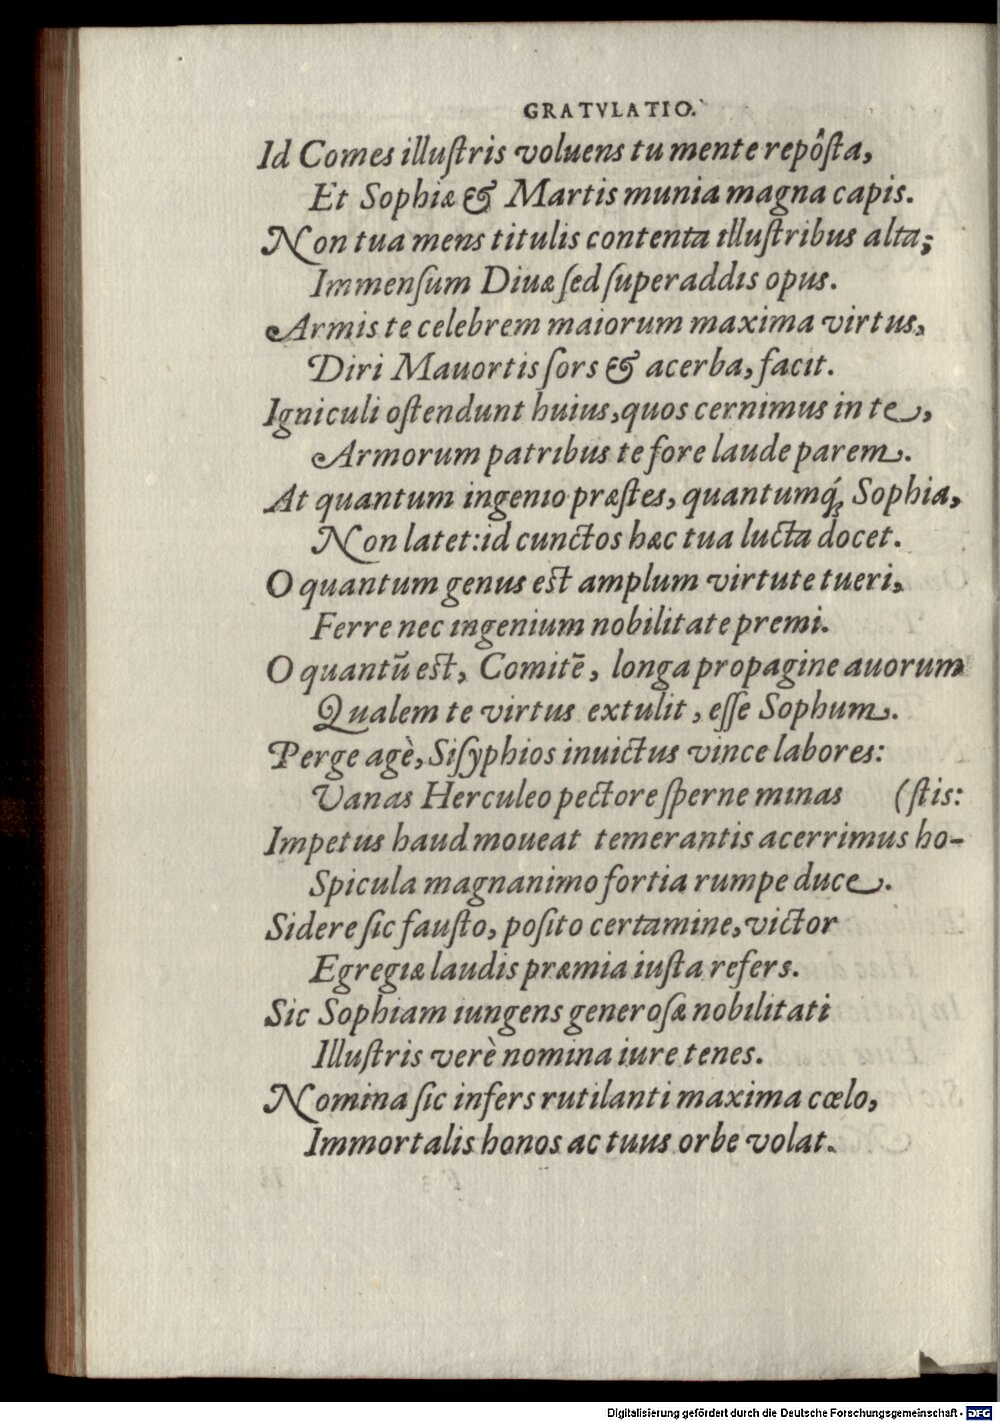 GRATVLATIO.
Id Comes illuſtris voluens tu mente repôſta,
Et Sophiæ & Martis munia magna capis.
Non tua mens titulis contenta illuſtribus alta;
Immenſum Diuæ ſed ſuperaddis opus.
Armis te celebrem maiorum maxima virtus,
Diri Mauortis ſors & acerba, facit.
Igniculi oſtendunt huius, quos cernimus in te,
Armorum patribus te fore laude parem.
At quantum ingenio præſtes, quantumq́; Sophia,
Non latet: id cunctos hæc tua lucta docet.
O quantum genus est amplum virtute tueri,
Ferre nec ingenium nobilitate premi.
O quantū est, Comitē, longa propagine auorum
Qualem te virtus extulit, eſſe Sophum.
Perge agè, Siſyphios inuictus vince labores:
Vanas Herculeo pectore ſperne minas (ſtis:
Impetus haud moueat temerantis acerrimus ho-
Spicula magnanimo fortia rumpe duce.
Sidere ſic fauſto, poſito certamine, victor
Egregiæ laudis præmia iuſta refers.
Sic Sophiam iungens generoſæ nobilitati
Illuſtris verè nomina iure tenes.
Nomina ſic infers rutilanti maxima cœlo,
Immortalis honos ac tuus orbe volat.
Digitalisierung gefördert durch die Deutsche Forschungsgemeinschaft - DFG